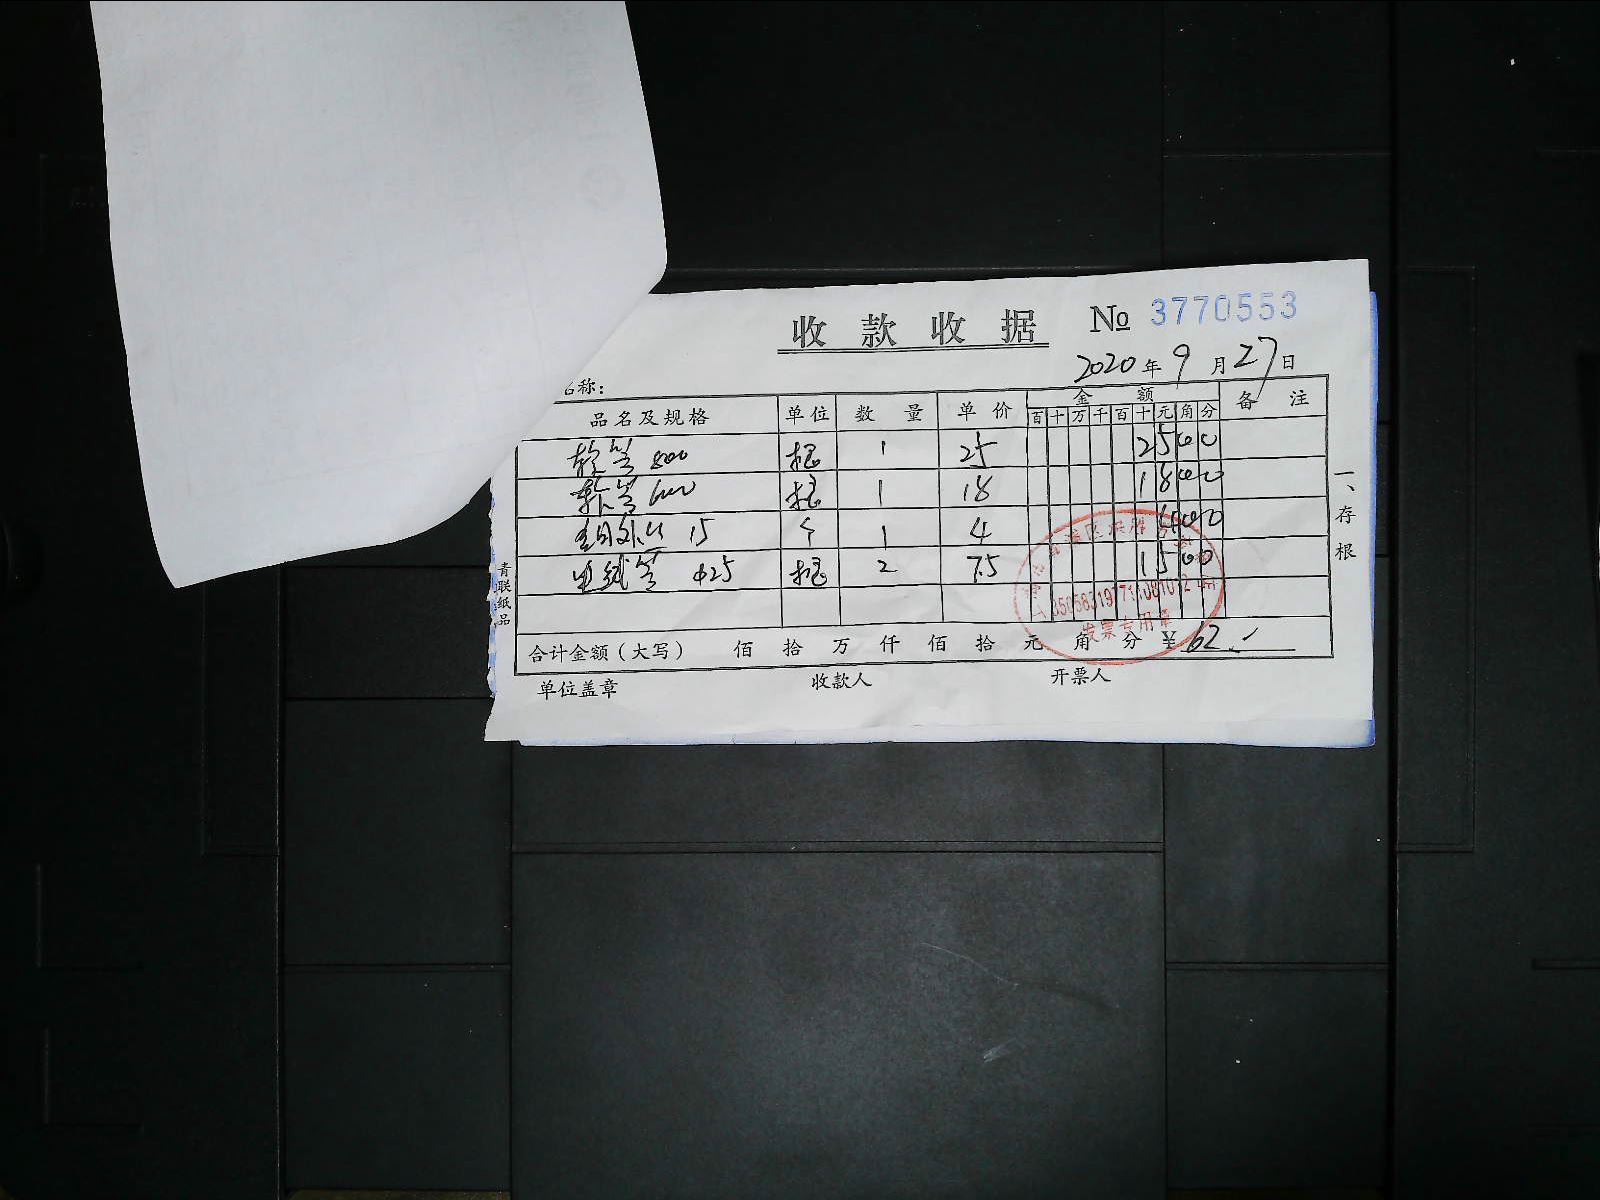 收款收据 № 3770553
2020年9月27日
名称:
品名及规格 单位 数量 单价 金额 备注
百 十 万 千 百 十 元 角 分
软管 800 根 1 25 2 5 0 0
软管 600 根 1 18 1 8 0 0
15 个 1 4 4 0 0
管 φ25 根 2 7.5 1 5 0 0
合计金额(大写) 佰 拾 万 仟 佰 拾 元 角 分 ¥ 62.
单位盖章 收款人 开票人
一、存根
青联纸品
发票专用章